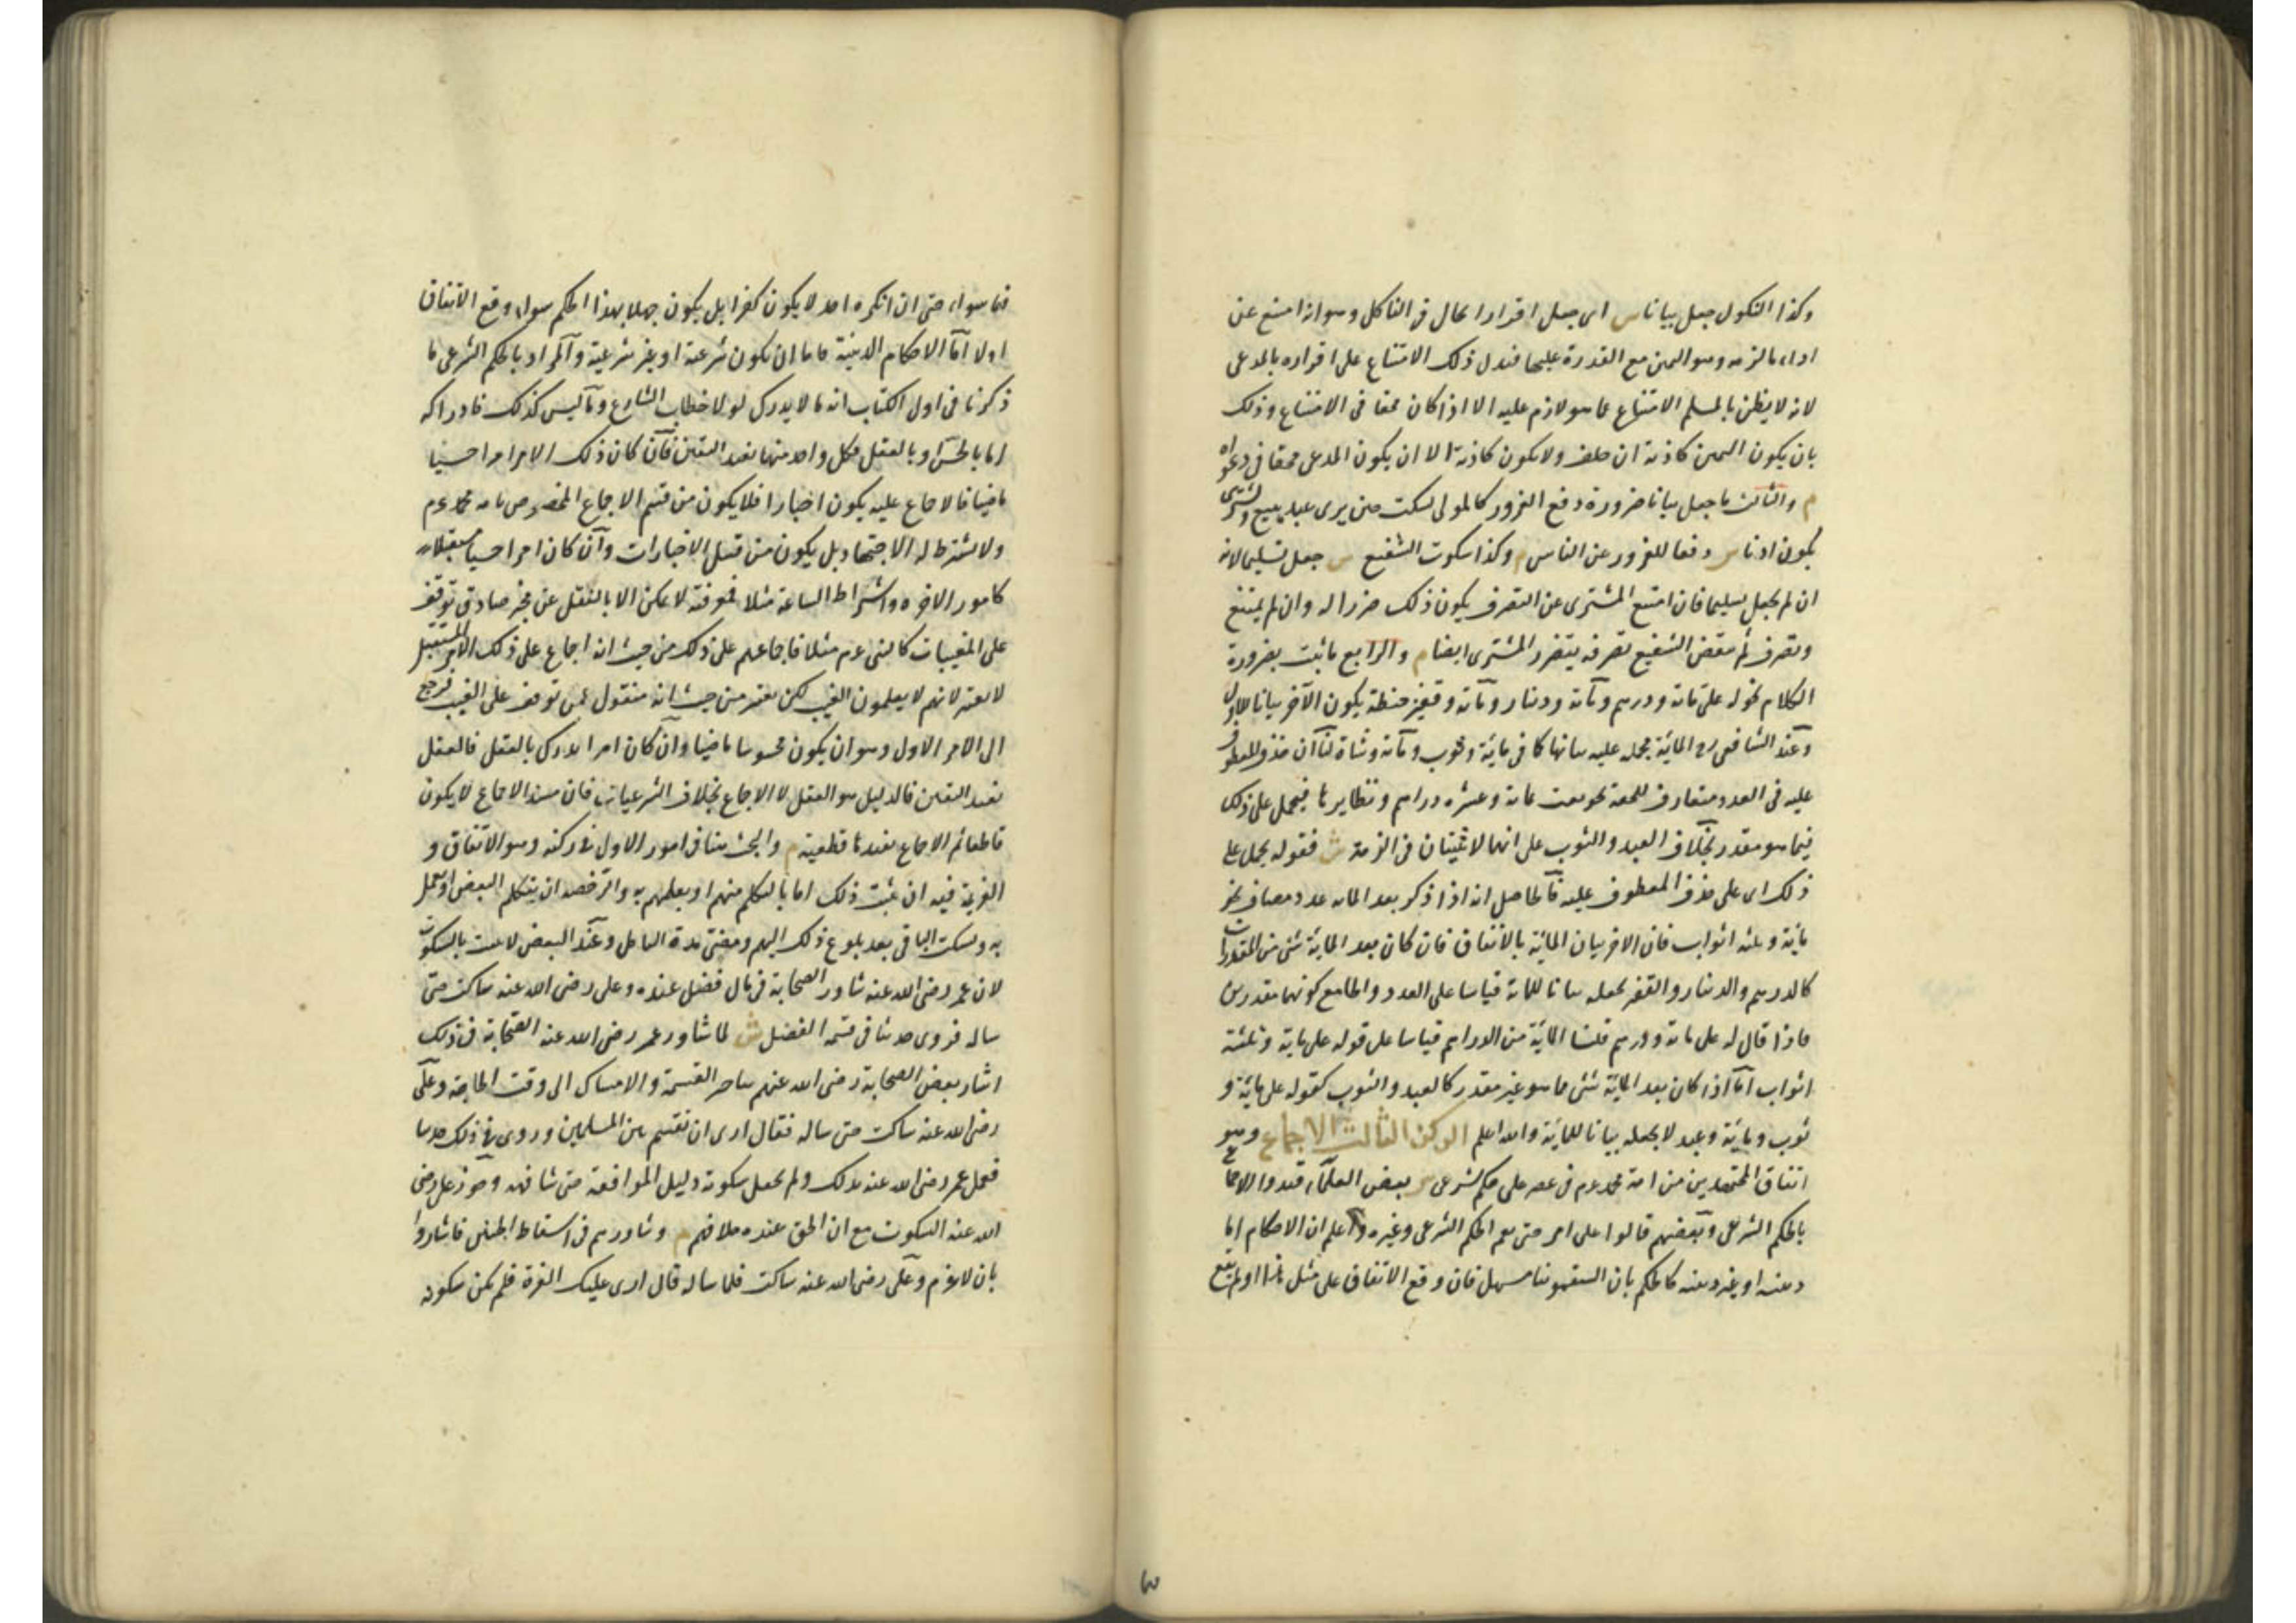 وكذا النكول جعل بيانا س اى جعل اقرارا لحال فى الناكل وهو انه امتنع عن
اداء ما لزمه وهو اليمين مع القدرة عليها فيدل ذلك الامتناع على اقراره بالمدعى
لانه لا يظن بالمسلم الامتناع عما هو لازم عليه الا اذا كان محقا فى الامتناع وذلك
بان يكون اليمين كاذبة ان حلف ولا يكون كاذبة الا ان يكون المدعى محقا فى دعواه
م والثالث ما جعل بيانا ضرورة دفع الغرور كالمولى يسكت حين يرى عبده يبيع ويشترى
يكون اذنا س دفعا للغرور عن الناس م وكذا سكوت الشفيع س جعل تسليما لانه
ان لم يجعل تسليما فان امتنع المشترى عن التصرف يكون ذلك ضررا له وان لم يمتنع
وتصرف ثم ينقض الشفيع تصرفه يتضرر المشترى ايضا م والرابع ما ثبت بضرورة
الكلام نحو له على مائة ودرهم ومائة ودينار ومائة وقفيز حنطة يكون الآخر بيانا للاول
وعند الشافعى رح المائة مجملة عليه بيانها كما فى مائة وثوب ومائة وشاة لنا ان حذف المعطوف
عليه فى العدد متعارف للخفة نحو بعت بمائة وعشرة دراهم ونظايرها فيحمل على ذلك
فيما هو مقدر بخلاف العبد والثوب على انهما لا يثبتان فى الذمة ش فقوله يحمل على
ذلك اى على حذف المعطوف عليه فالحاصل انه اذا ذكر بعد المائة عدد مضاف نحو
مائة وثلثة اثواب فان الاخر بيان المائة بالاتفاق فان كان بعد المائة شئ من المقدرات
كالدرهم والدينار والقفيز نجعله بيانا للمائة قياسا على العدد والجامع كونهما مقدرين
فاذا قال له على مائة ودرهم قلنا المائة من الدراهم قياسا على قوله على مائة وثلثة
اثواب اما اذا كان بعد المائة شئ مما هو غير مقدر كالعبد والثوب كقوله على مائة و
ثوب ومائة وعبد لا نجعله بيانا للمائة والله اعلم الركن الثالث الاجماع وهو
اتفاق المجتهدين من امة محمد عم فى عصر على حكم شرعى س بعض العلماء قيدوا الاجماع
بالحكم الشرعى وبعضهم قالوا على امر حتى يعم الحكم الشرعى وغيره واعلم ان الاحكام اما
دينية او غير دينية كالحكم بان السقمونيا مسهل فان وقع الاتفاق على مثل هذا او لم يقع
فهما سواء حتى ان انكره احد لا يكون كفرا بل يكون جهلا بهذا الحكم سواء وقع الاتفاق
اولا اما الاحكام الدينية فاما ان يكون شرعية او غير شرعية والمراد بالحكم الشرعى ما
ذكرنا فى اول الكتاب انه ما لا يدرك لولا خطاب الشارع وما ليس كذلك فادراكه
اما بالحس او بالعقل فكل واحد منهما يفيد اليقين فان كان ذلك الامر امرا حسيا
ماضيا فالاجماع عليه يكون اخبارا فلا يكون من قسم الاجماع المخصوص بامة محمد عم
ولا يشترط له الاجتهاد بل يكون من قبيل الاخبارات وان كان امرا حسيا مستقبلا
كامور الاخرة واشراط الساعة مثلا فمعرفته لا يمكن الا بالنقل عن مخبر صادق توقف
على المغيبات كالنبى عم مثلا فاجماعهم على ذلك من حيث انه اجماع على ذلك الامر المستقبل
لا يعتبر لانهم لا يعلمون الغيب لكن يعتبر من حيث انه منقول عمن توقف على الغيب فرجع
الى الامر الاول وهو ان يكون محسوسا ماضيا وان كان امرا يدرك بالعقل فالعقل
يفيد اليقين فالدليل هو العقل لا الاجماع بخلاف الشرعيات فان مستند الاجماع لا يكون
قاطعا ثم الاجماع يفيدها قطعية م والبحث هنا فى امور الاول فى ركنه وهو الاتفاق و
العزيمة فيه ان يثبت ذلك اما بالتكلم منهم او بعملهم به والرخصة ان يتكلم البعض او يعمل
به ويسكت الباقى بعد بلوغ ذلك اليهم ومضى مدة التامل وعند البعض لا يثبت بالسكوت
لان عمر رضى الله عنه شاور الصحابة فى مال فضل عنده وعلى رضى الله عنه ساكت حتى
ساله فروى حديثا فى قسمة الفضل ش لما شاور عمر رضى الله عنه الصحابة فى ذلك
اشار بعض الصحابة رضى الله عنهم بتاخير القسمة والامساك الى وقت الحاجة وعلى
رضى الله عنه ساكت حتى ساله فقال ارى ان تقسم بين المسلمين وروى فى ذلك حديثا
فعمل عمر رضى الله عنه بذلك ولم يجعل سكوته دليل الموافقة حتى شافهه وجوز على رضى
الله عنه السكوت مع ان الحق عنده خلافهم م وشاورهم فى اسقاط الجنين فاشاروا
بان لا غرم وعلى رضى الله عنه ساكت فلما ساله قال ارى عليك الغرة فلم يكن سكوته